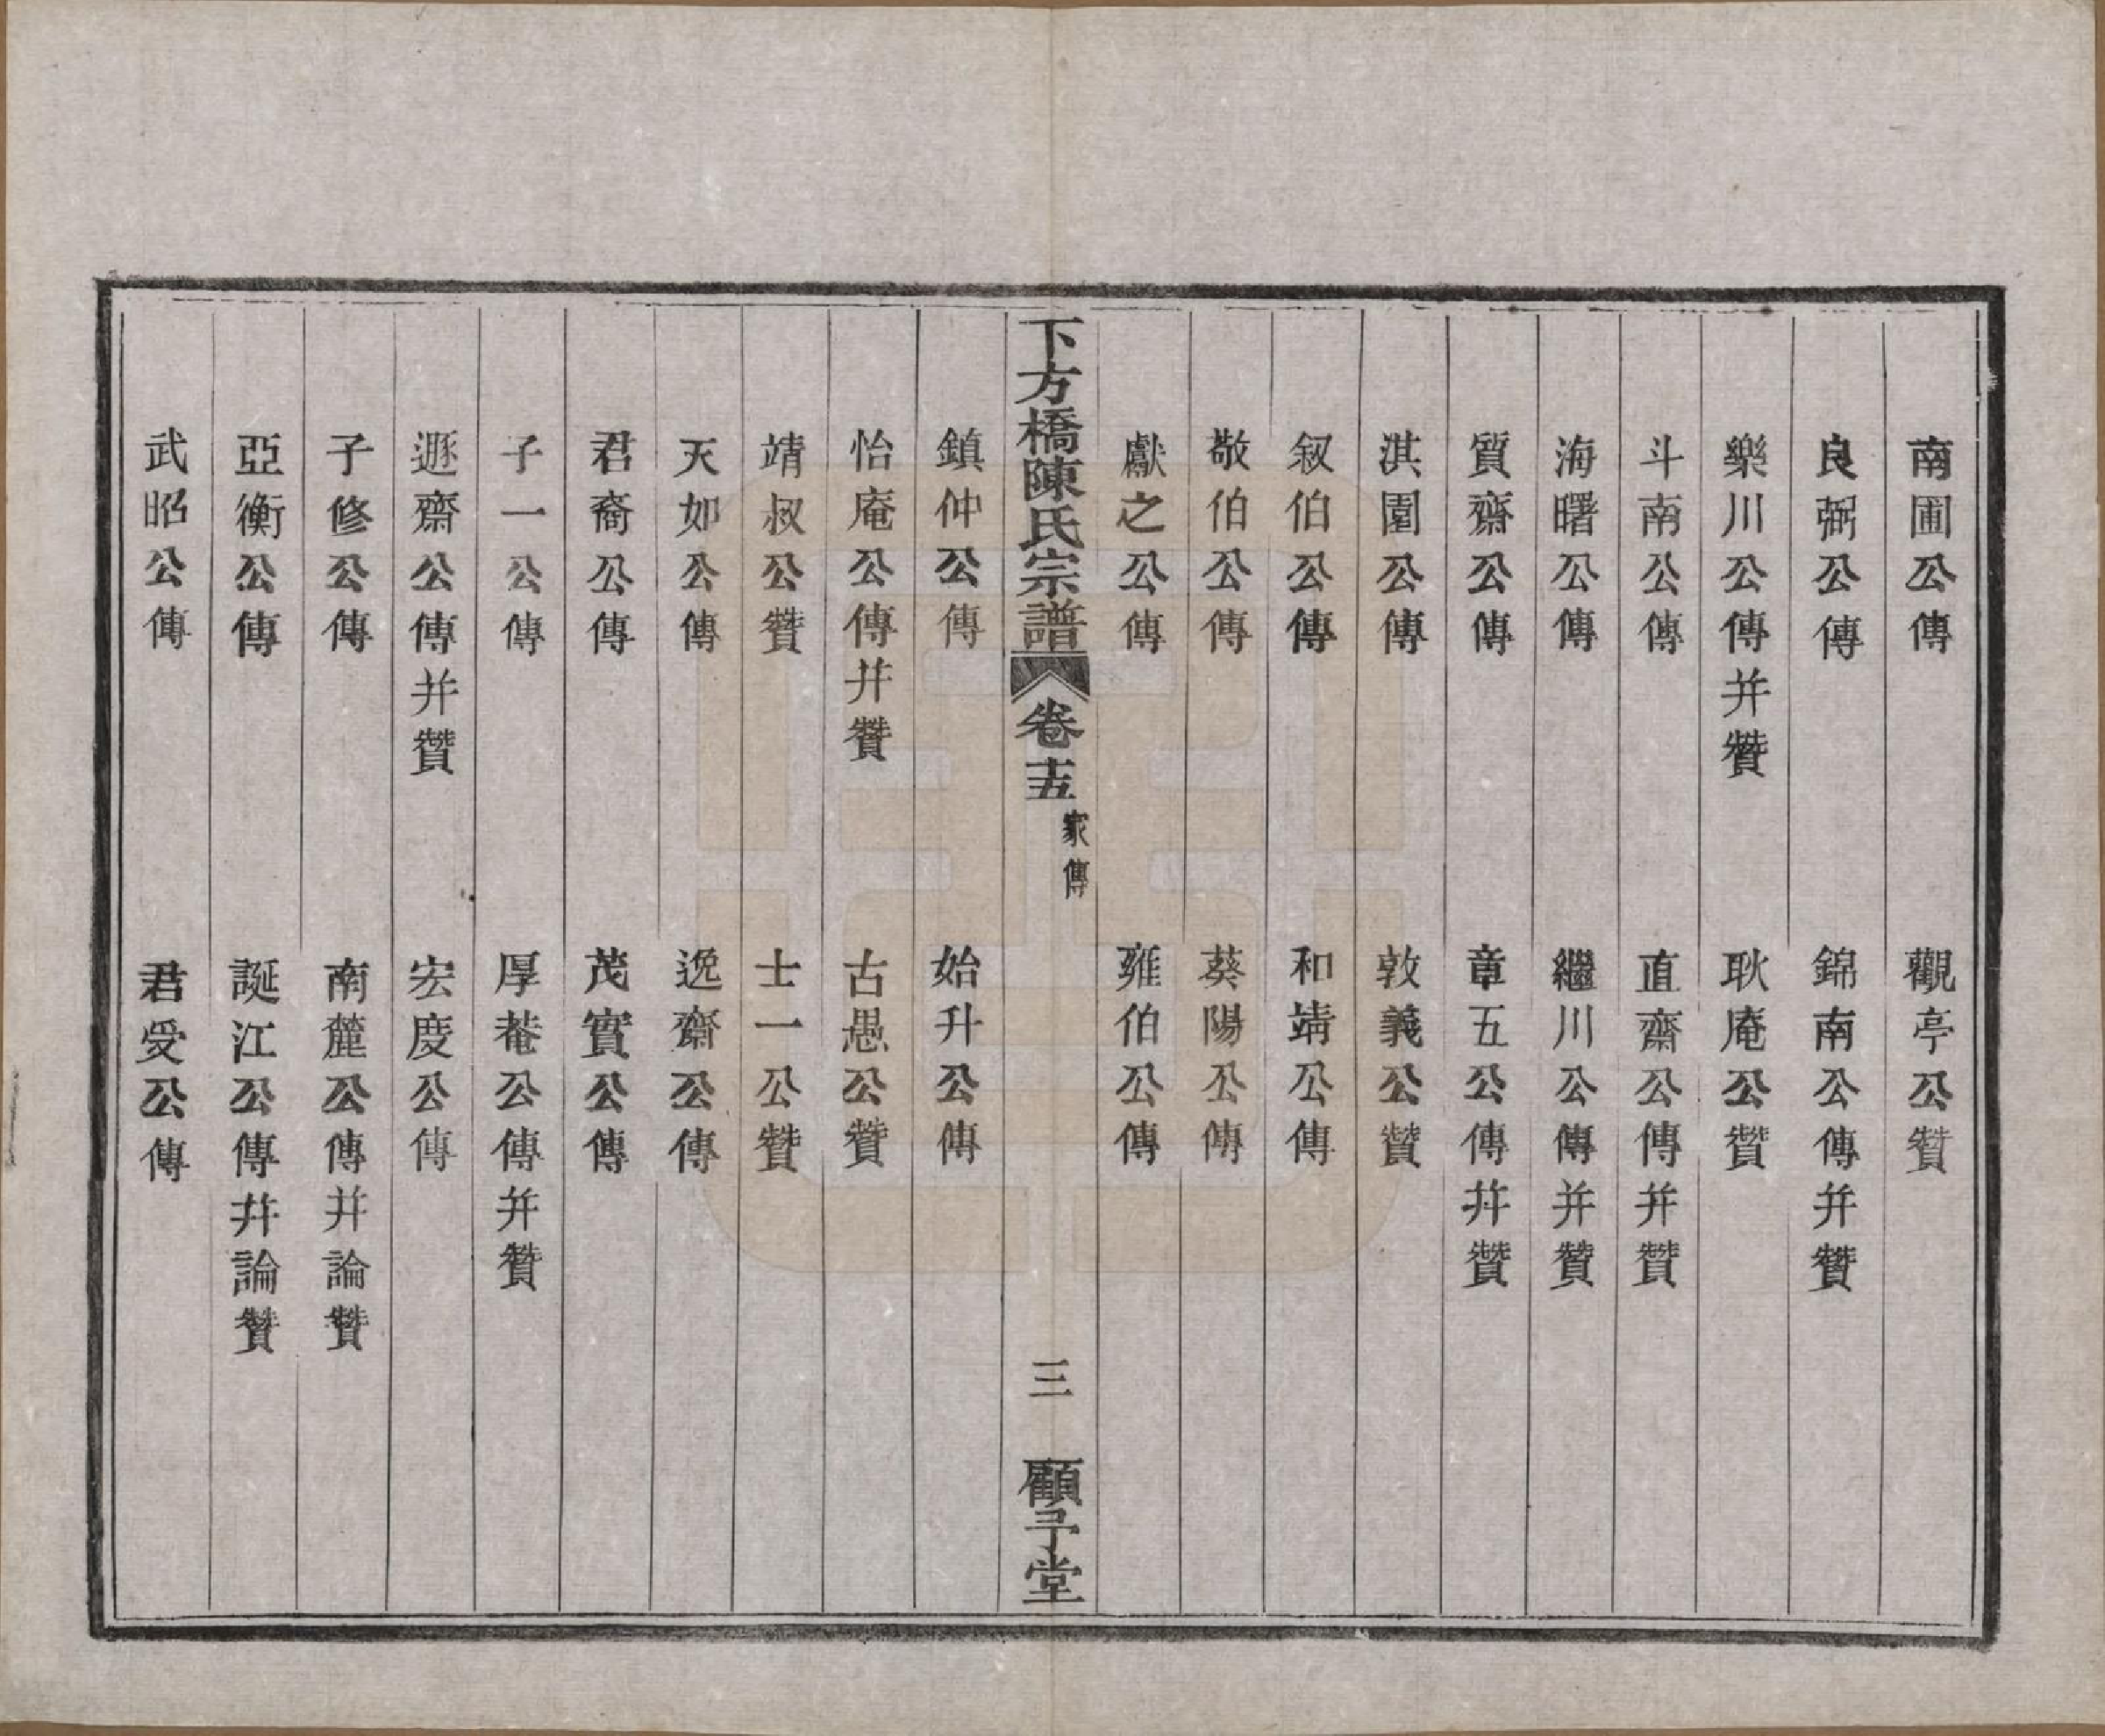 南圃公傳　觀亭公贊
良弼公傳　錦南公傳并贊
樂川公傳并贊　耿庵公贊
斗南公傳　直齋公傳并贊
海曙公傳　繼川公傳并贊
質齋公傳　章五公傳并贊
淇園公傳　敦義公贊
叙伯公傳　和靖公傳
敬伯公傳　葵陽公傳
獻之公傳　雍伯公傳
下方橋陳氏宗譜　卷十五　家傳　三　顧予堂
鎮仲公傳　始升公傳
怡庵公傳并贊　古愚公贊
靖叔公贊　士一公贊
天如公傳　逸齋公傳
君裔公傳　茂實公傳
子一公傳　厚菴公傳并贊
遯齋公傳并贊　宏度公傳
子修公傳　南麓公傳并論贊
亞衡公傳　誕江公傳并論贊
武昭公傳　君受公傳